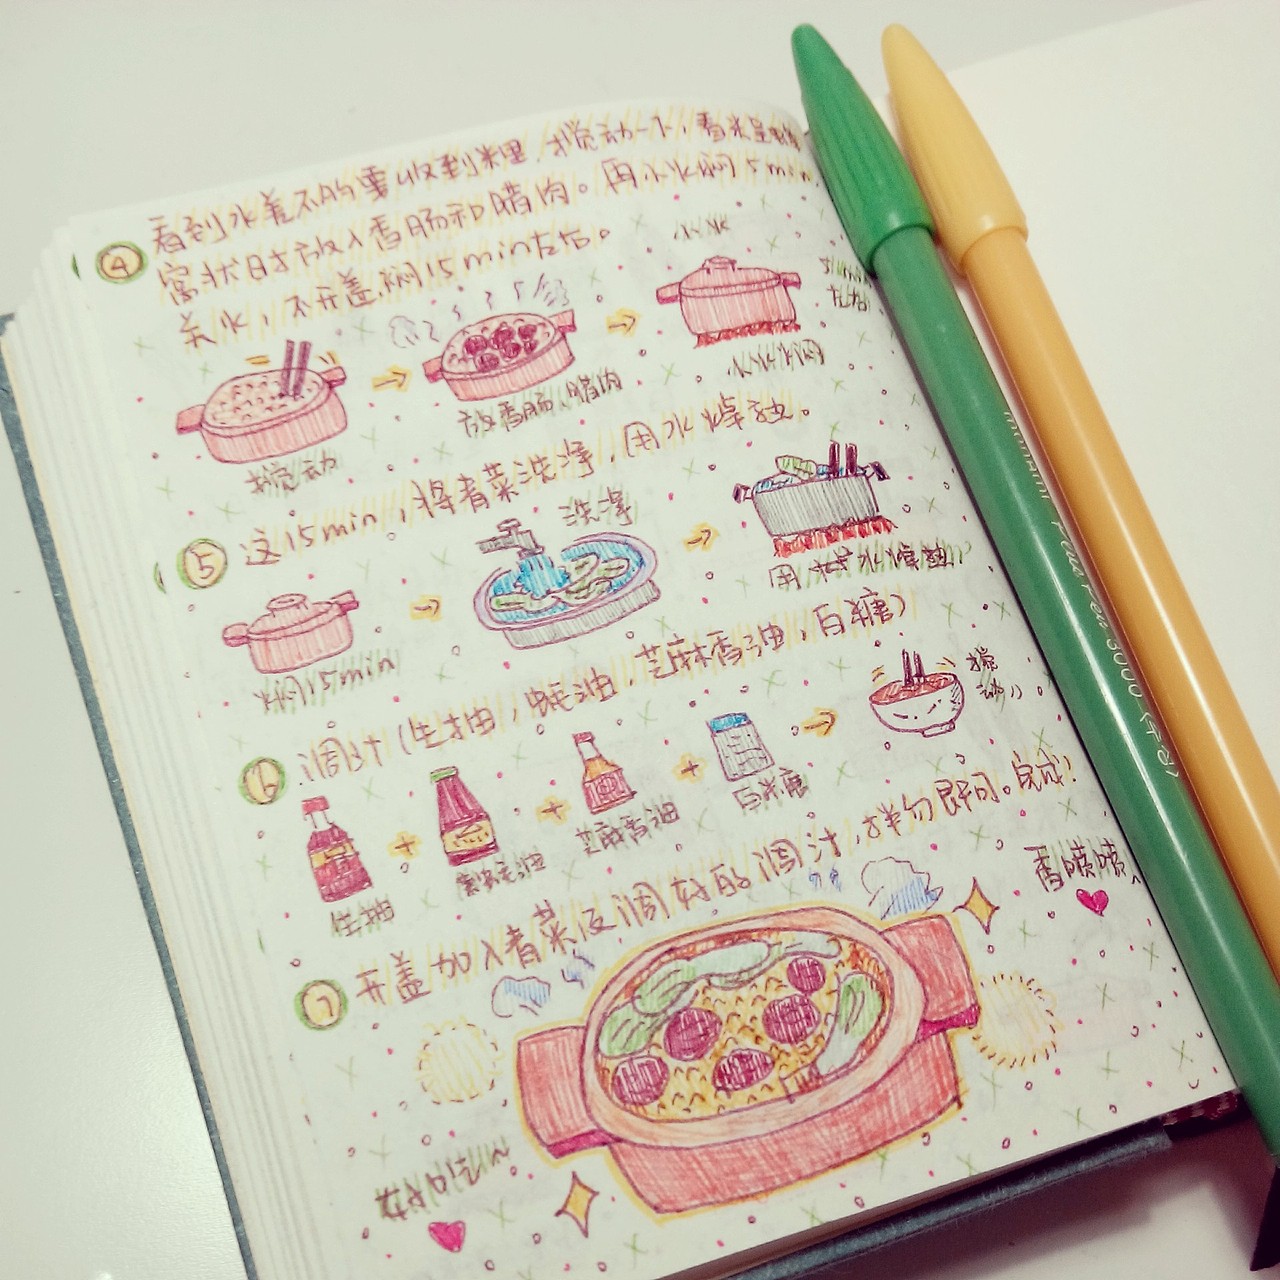 ④ 看到水差不多要收到米里,搅动一下,看米呈蜂
窝状时放入香肠和腊肉。用小火焖15min,
关火,不开盖,焖15min左右。
小火
搅动
放香肠、腊肉
小火焖
⑤ 这15min,将青菜洗净,用水焯熟。
洗净
焖15min
用水焯熟
⑥ 调汁(生抽,蚝油,芝麻香油,白糖)
搅动
生抽
+
蚝油
+
芝麻香油
+
白糖
⑦ 开盖加入青菜及调好的调汁,拌匀即可。完成!
香喷喷
好好吃
monami Plus Pen 3000